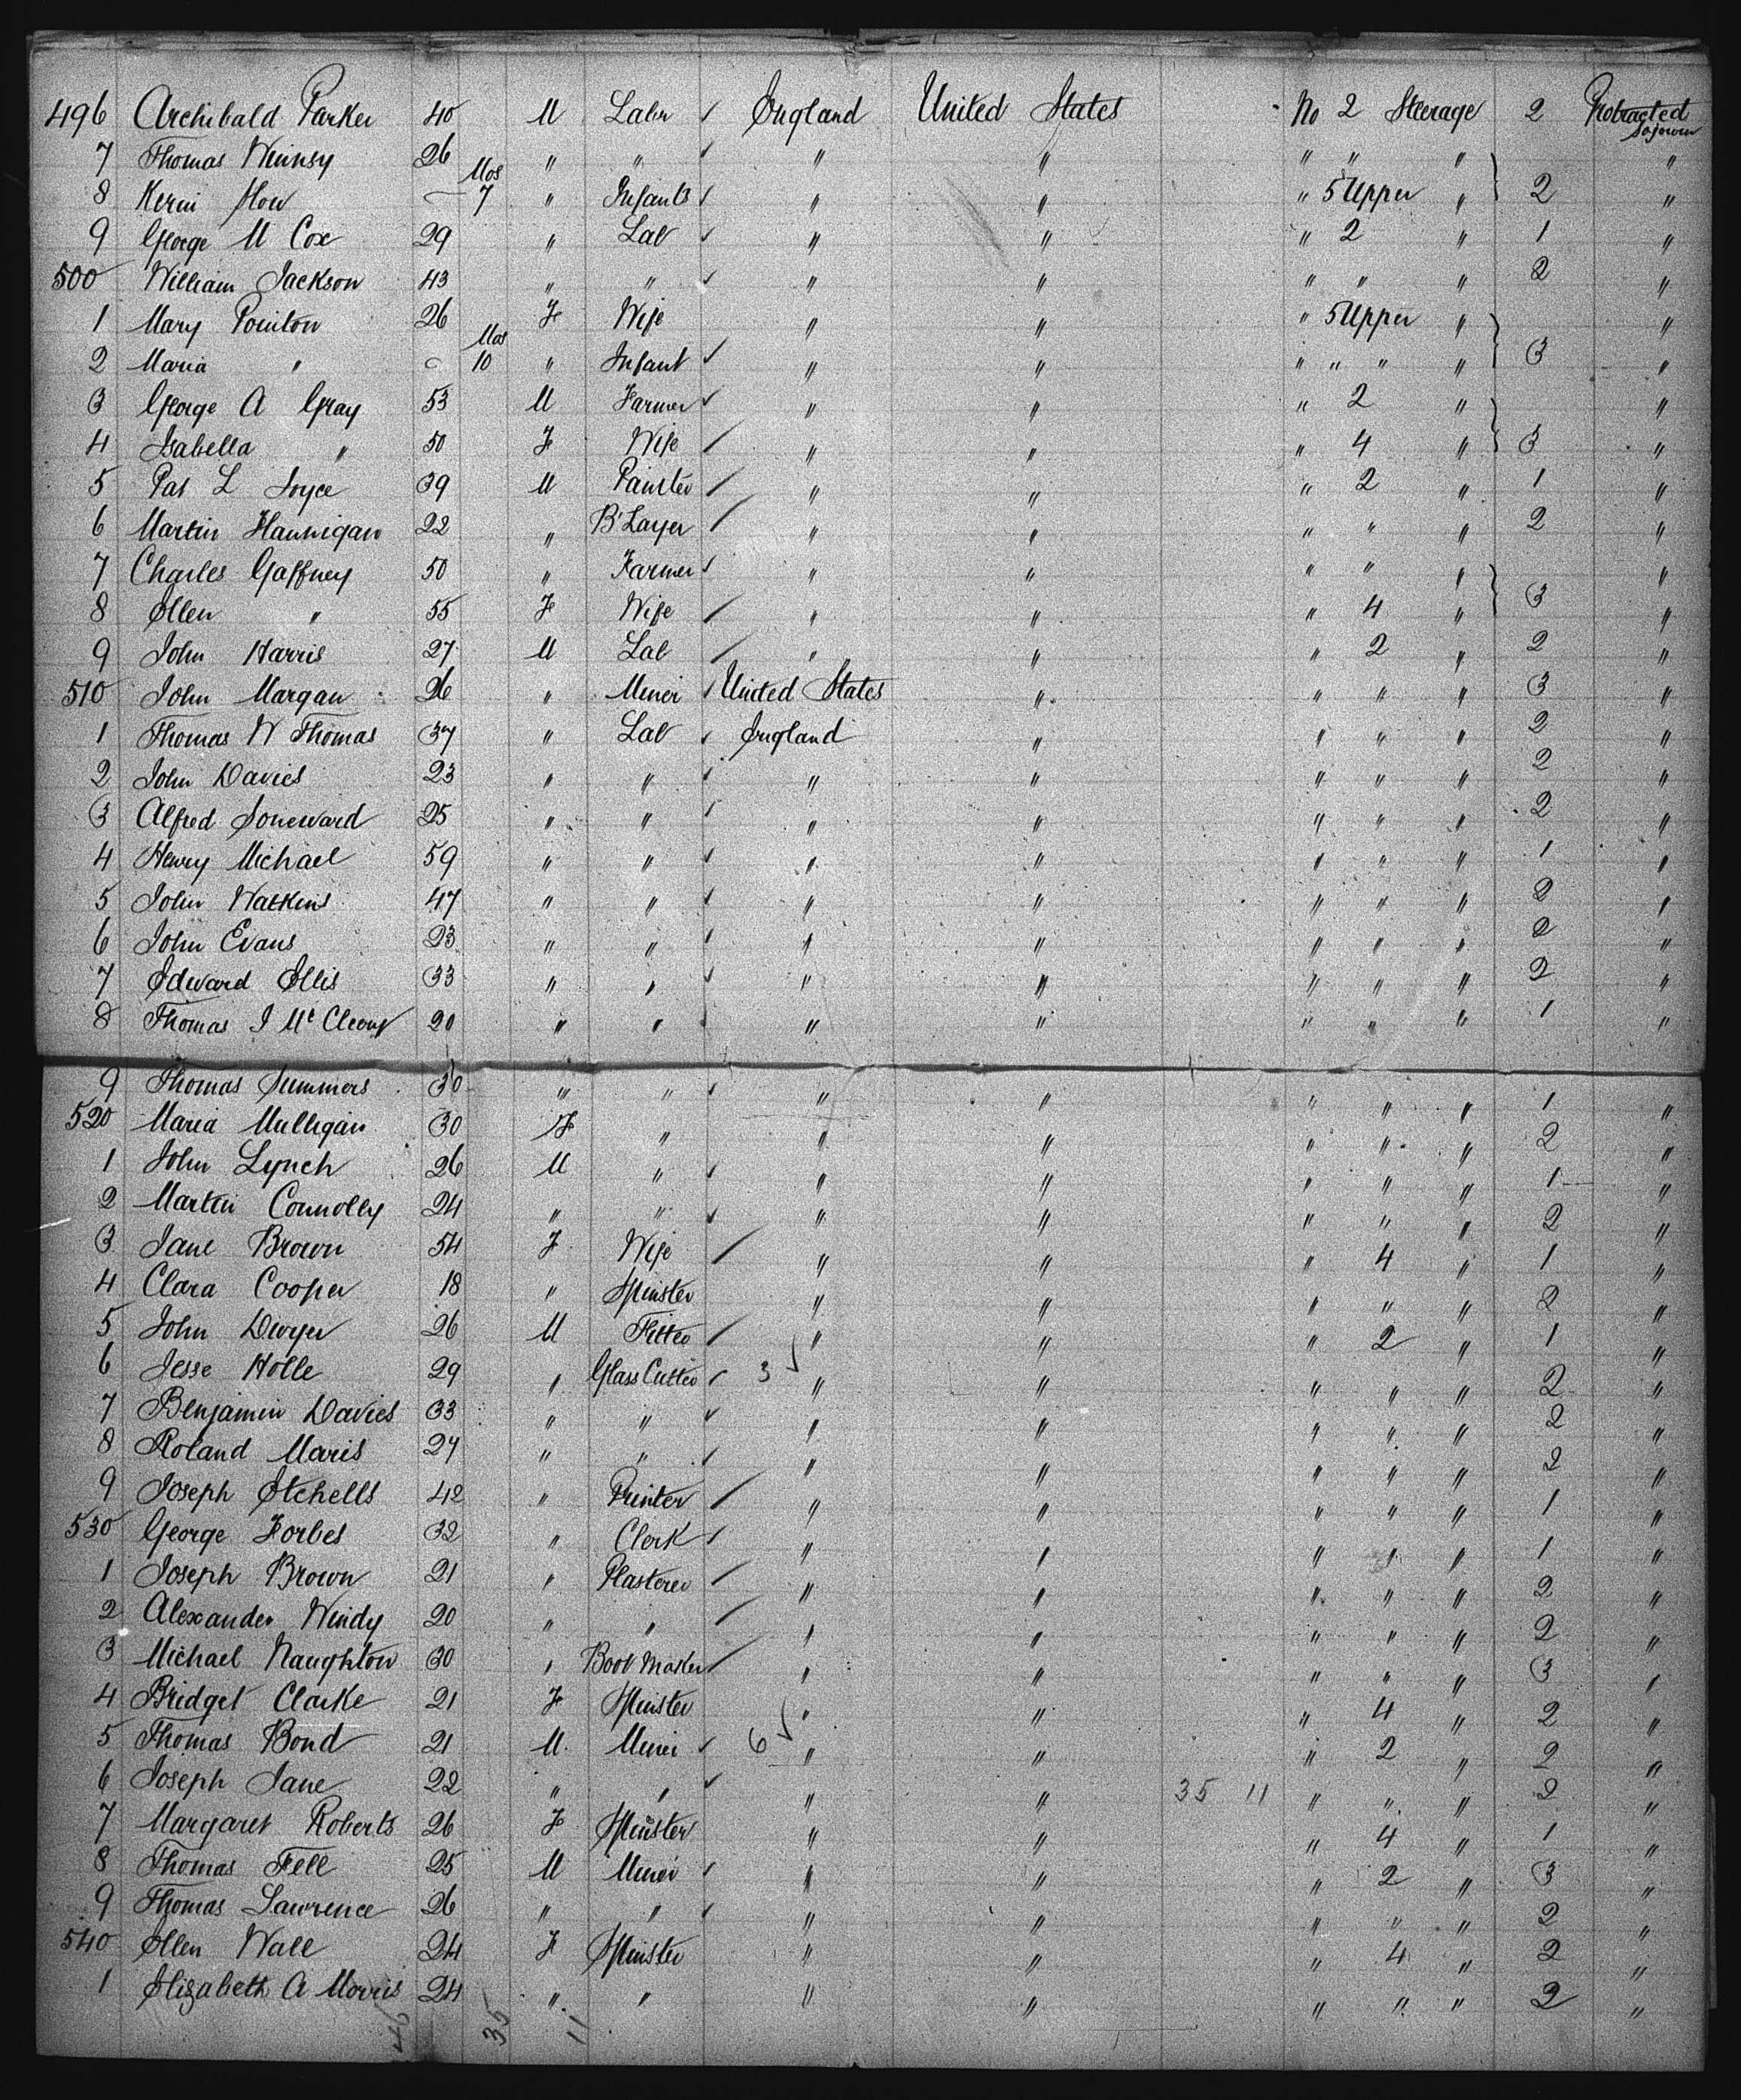 496 Archibald Parker 40 M Labr ✓ England United States No 2 Steerage 2 Protracted Sojourn
7 Thomas 26 " " ✓ " " " " " "
8 How – Mos 7 " Infants ✓ " " " 5 Upper " 2 "
9 George M Cox 29 " Lab ✓ " " " 2 " 1 "
500 William Jackson 43 " " ✓ " " " " " 2 "
1 Mary Pointon 26 F Wife " " " 5 Upper " "
2 Maria " – Mos 10 " Infant ✓ " " " " " " 3 "
3 George A Gray 53 M Farmer ✓ " " " 2 " "
4 Isabella " 50 F Wife / " " " 4 " 3 "
5 Pat L Joyce 39 M Painter / " " " 2 " 1 "
6 Martin Hannigan 22 " B'Layer / " " " " " 2 "
7 Charles Gaffney 50 " Farmer ✓ " " " " " "
8 Ellen " 55 F Wife / " " " 4 " 3 "
9 John Harris 27 M Lab / " " " 2 " 2 "
510 John Margan 26 " Miner ✓ United States " " " " 3 "
1 Thomas W Thomas 37 " Lab ✓ England " " " " 2 "
2 John Davies 23 " " ✓ " " " " " 2 "
3 Alfred 25 " " ✓ " " " " " 2 "
4 Henry Michael 59 " " ✓ " " " " " 1 "
5 John Watkins 47 " " ✓ " " " " " 2 "
6 John Evans 23 " " ✓ " " " " " 2 "
7 Edward Ellis 33 " " ✓ " " " " " 2 "
8 Thomas J 20 " " " " " " " 1 "
9 Thomas Summers 30 " " ✓ " " " " " 1 "
520 Maria Mulligan 30 F " " " " " " 2 "
1 John Lynch 26 M " ✓ " " " " " 1 "
2 Martin Connolly 24 " " ✓ " " " " " 2 "
3 Jane Brown 54 F Wife / " " " 4 " 1 "
4 Clara Cooper 18 " Spinster " " " " " 2 "
5 John Dwyer 26 M Fitter / " " " 2 " 1 "
6 Jesse Holle 29 " Glass Cutter ✓ 3 ✓ " " " " " 2 "
7 Benjamin Davies 33 " " ✓ " " " " " 2 "
8 Roland Maris 27 " " ✓ " " " " " 2 "
9 Joseph Etchells 42 " Printer / " " " " " 1 "
530 George Forbes 32 " Clerk ✓ " " " " " 1 "
1 Joseph Brown 21 " Plasterer / " " " " " 2 "
2 Alexander Windy 20 " " / " " " " " 2 "
3 Michael Naughton 30 " Boot Maker / " " " " " 3 "
4 Bridget Clarke 21 F Spinster " " " 4 " 2 "
5 Thomas Bond 21 M Miner ✓ 6 ✓ " " " 2 " 2 "
6 Joseph Jane 22 " " ✓ " " 35 11 " " " 2 "
7 Margaret Roberts 26 F Spinster " " " 4 " 1 "
8 Thomas Fell 25 M Miner ✓ " " " 2 " 3 "
9 Thomas Lawrence 26 " " ✓ " " " " " 2 "
540 Ellen Wall 24 F Spinster " " " 4 " 2 "
1 Elizabeth A Morris 24 " " " " " " " 2 "
46 35 11